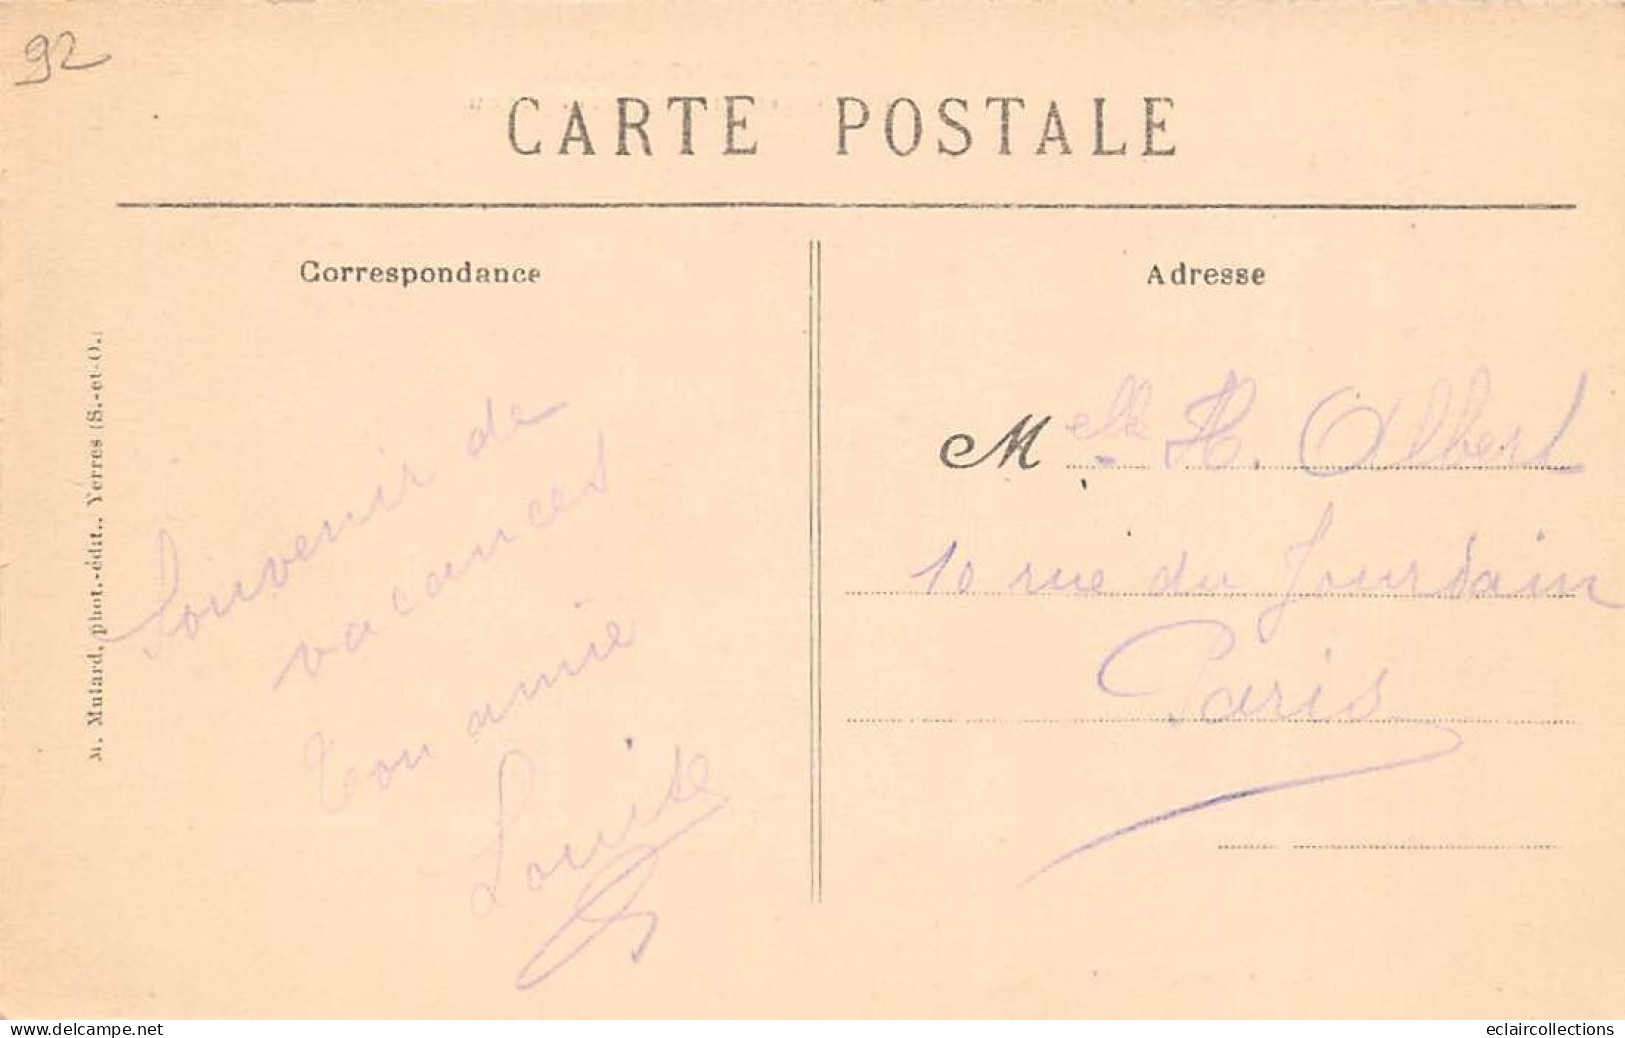 92
CARTE POSTALE
Correspondance
Adresse
M. Mutard, phot.-édit., Yerres (S.-et-O.)
Souvenir de
vacances
Ton amie
Louise
Melle H. Albert
10 rue du Jourdain
Paris
www.delcampe.net
eclaircollections